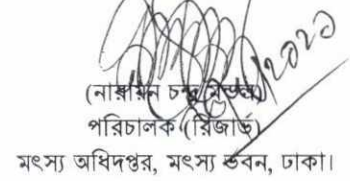 (নারায়ন চন্দ্র
পরিচালক (রিজার্ভ)
মৎস্য অধিদপ্তর, মৎস্য ভবন, ঢাকা।